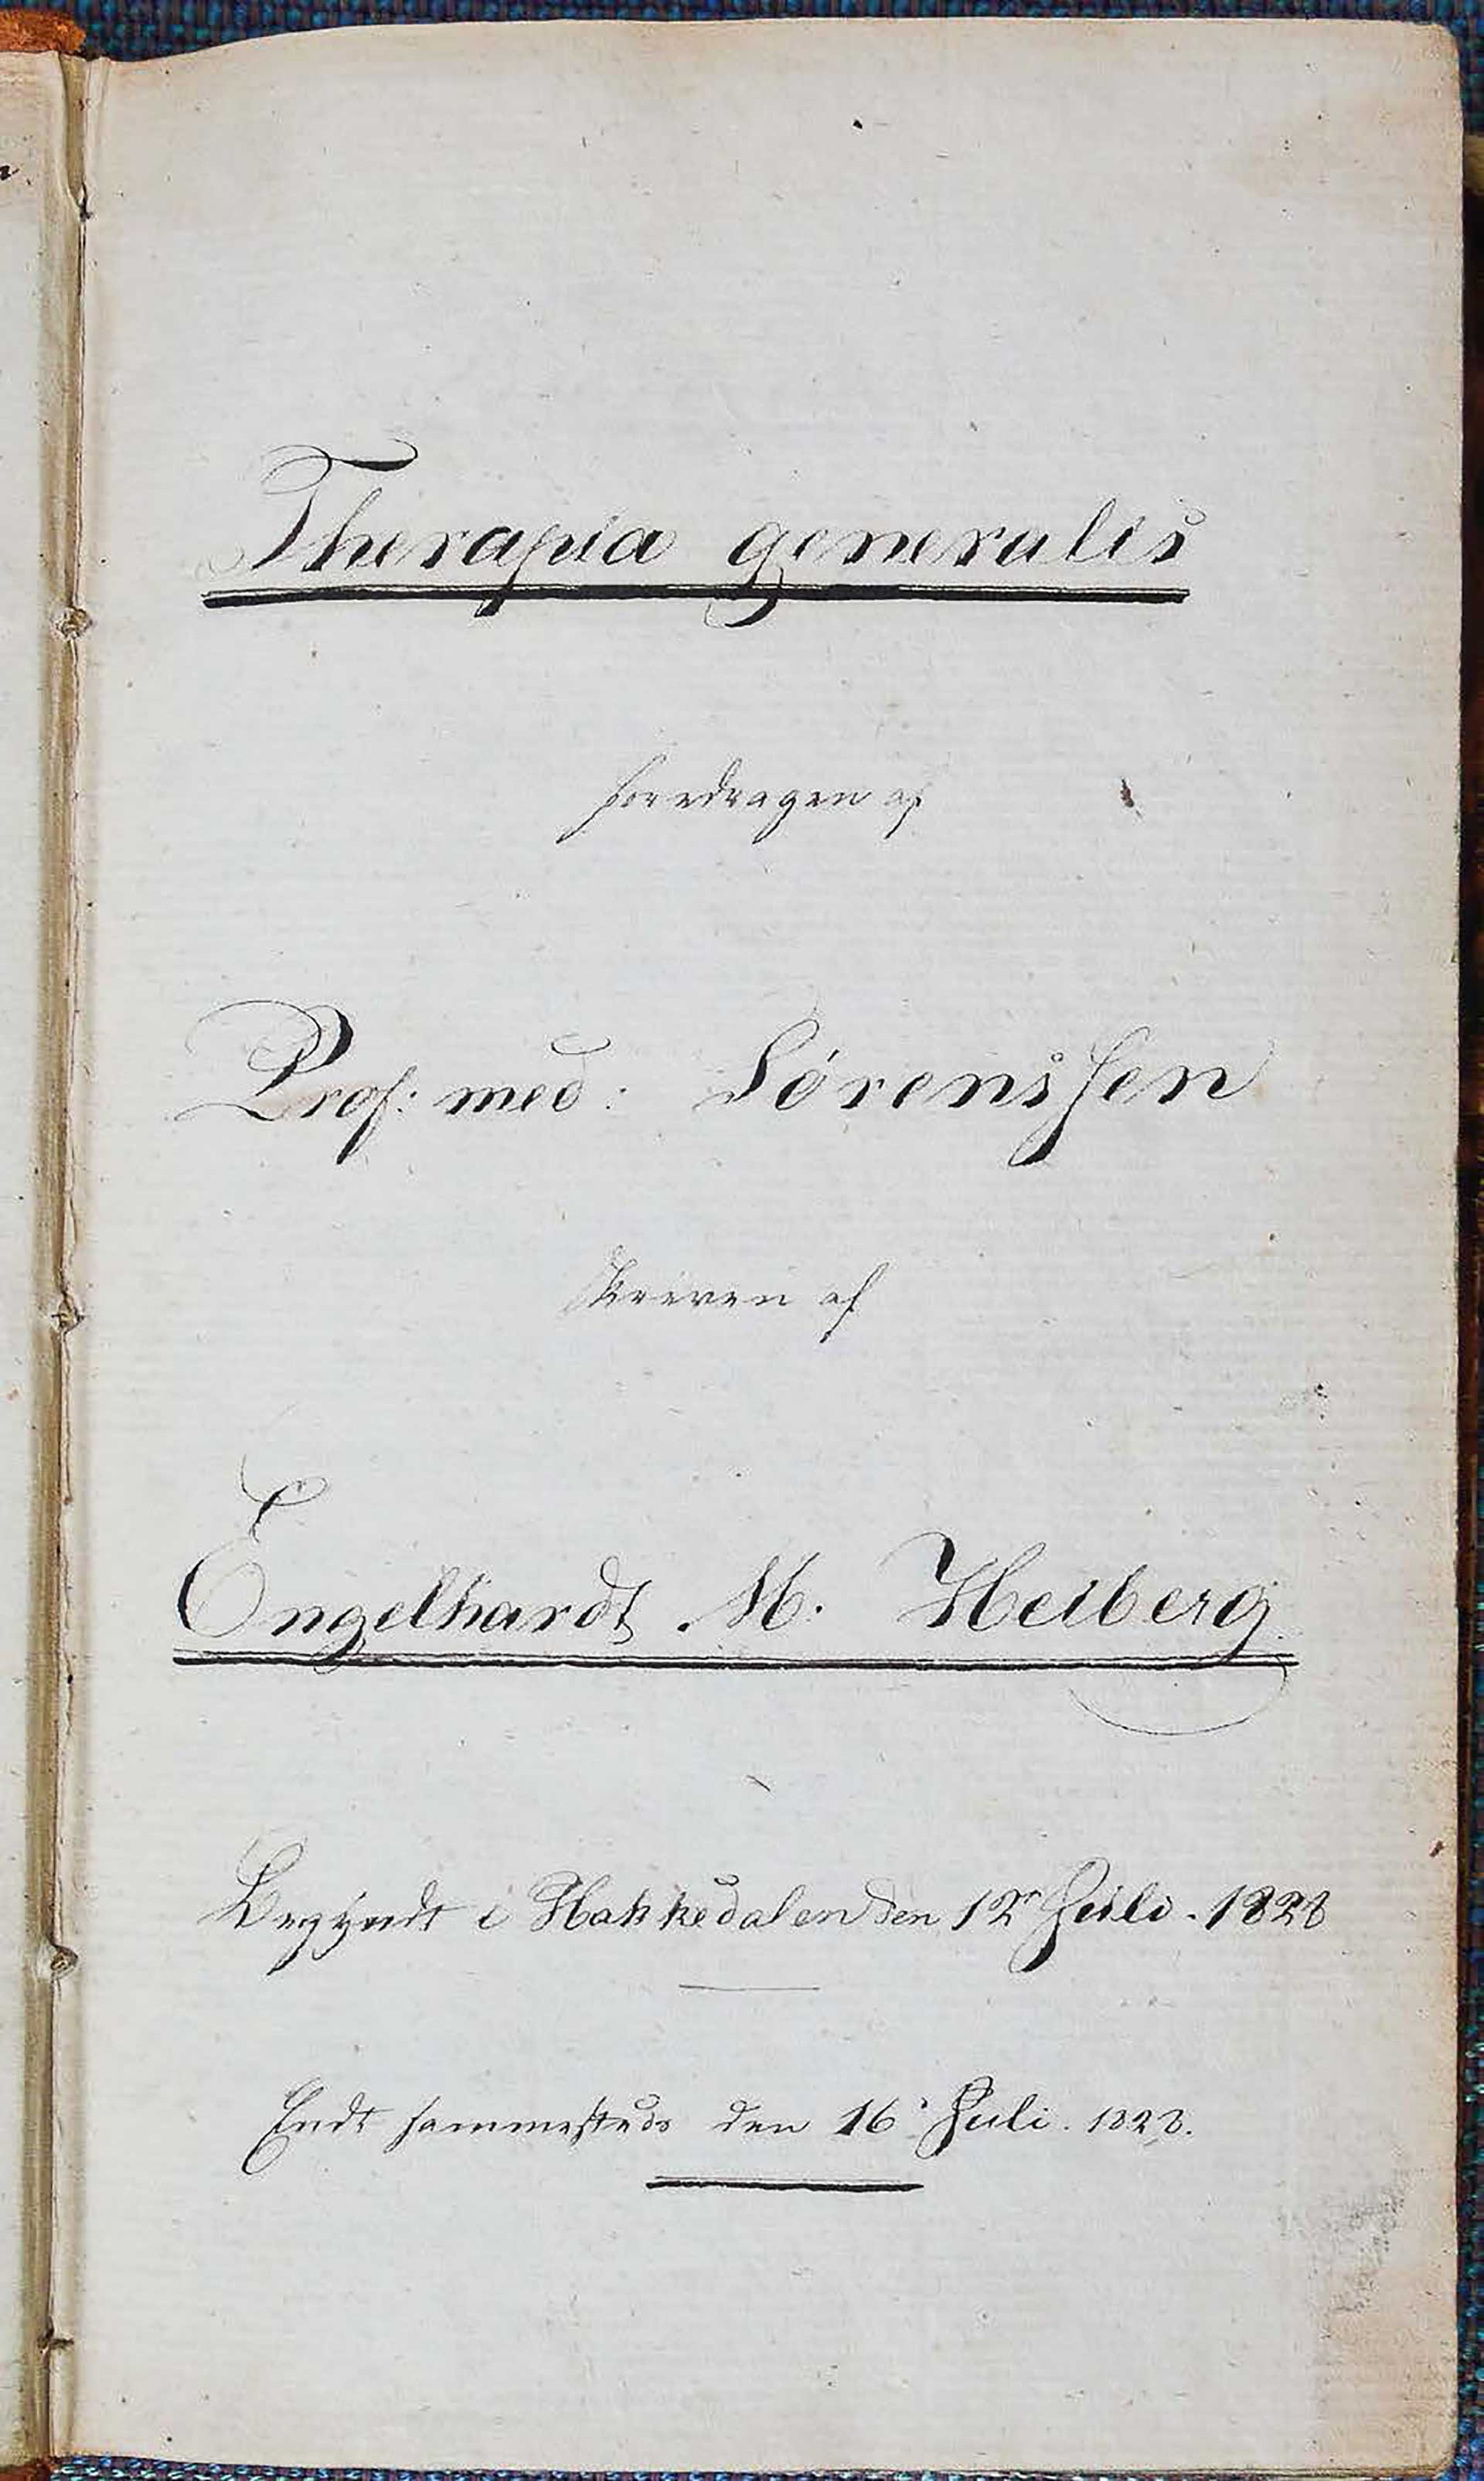 Therapia generalis
foredragen af
Prof: med: Sørenssen
skreven af
Engelhardt M. Heiberg
Begyndt i Hakkedalen den 12te Juli. 1828
Endt sammesteds den 16. Juli. 1828.